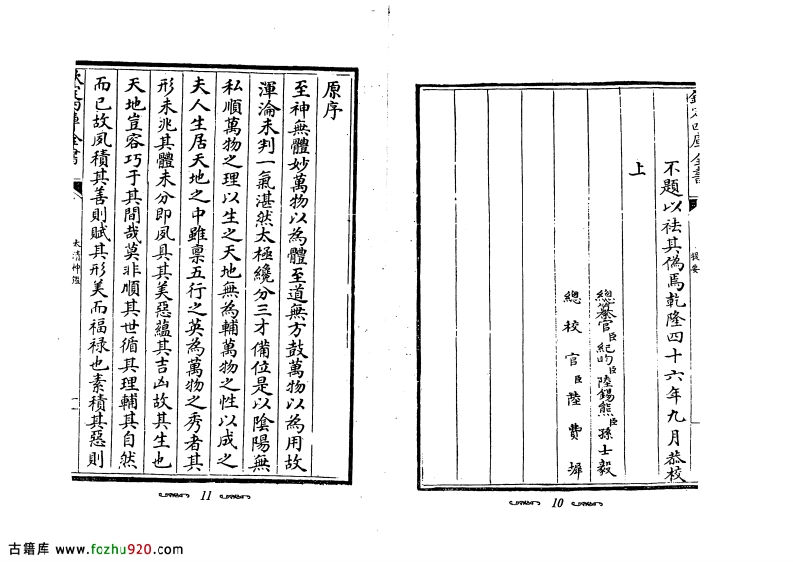 欽定四庫全書
提要
不題以祛其偽焉乾隆四十六年九月恭校
上
總纂官臣紀昀臣陸錫熊臣孫士毅
總校官臣陸費墀
10
原序
至神無體妙萬物以為體至道無方鼓萬物以為用故
渾淪未判一氣湛然太極纔分三才備位是以陰陽無
私順萬物之理以生之天地無為輔萬物之性以成之
夫人生居天地之中雖稟五行之英為萬物之秀者其
形未兆其體未分即夙具其美惡蘊其吉凶故其生也
天地豈容巧于其間哉莫非順其世循其理輔其自然
而已故夙積其善則賦其形美而福祿也素積其惡則
欽定四庫全書
太清神鑑
11
古籍库 www.fozhu920.com